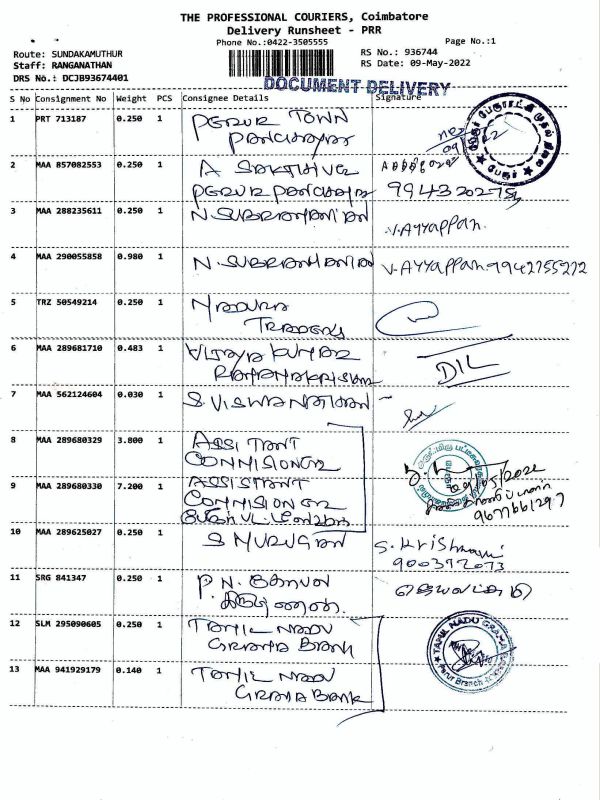 THE PROFESSIONAL COURIERS, Coimbatore
Delivery Runsheet - PRR
Phone No.:0422-3505555
Page No.:1
Route: SUNDAKAMUTHUR
Staff: RANGANATHAN
DRS No.: DCJB93674401
RS No.: 936744
RS Date: 09-May-2022
DOCUMENT DELIVERY
S No Consignment No Weight PCS Consignee Details Signature
1 PRT 713187 0.250 1 PERUR TOWN
PANCHAYAT
2 MAA 857082553 0.250 1 A SAKTHIVEL
PERUR PANCHAYAT
3 MAA 288235611 0.250 1 N. SUBRAMANIAN V. Ayyappan.
4 MAA 290055858 0.980 1 N. SUBRAMANIAN V. Ayyappan 9942755272
5 TRZ 50549214 0.250 1 MADURA
TRADERS
6 MAA 289681710 0.483 1 VIJAYA KUMAR
D/L
7 MAA 562124604 0.030 1 S. VISWANATHAN
8 MAA 289680329 3.800 1 ASSITANT
COMMISIONER
9 MAA 289680330 7.200 1 ASSISTANT
COMMISIONER
10 MAA 289625027 0.250 1 S MURUGAN
11 SRG 841347 0.250 1 P.N.
12 SLM 295090605 0.250 1 TAMIL NADU
GRAMA BANK
13 MAA 941929179 0.140 1 TAMIL NADU
GRAMA BANK
TAMIL NADU GRAMA
Perur Branch